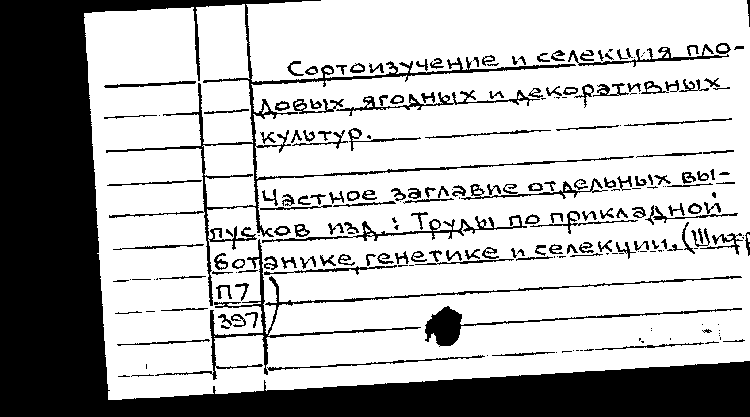 Сортоизучение и селекция пло-
довых, ягодных и декоративных
культур.
Частное заглавие отдельных вы-
пусков изд.: Труды по прикладной
ботанике, генетике и селекции. (Шифр
П7
397)